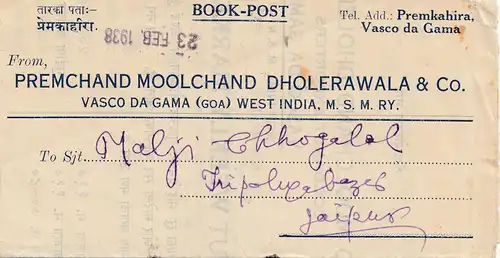 तारका पता:-
प्रेमकाहीरा.
BOOK-POST
Tel. Add.: Premkahira,
Vasco da Gama
23 FEB. 1938
From,
PREMCHAND MOOLCHAND DHOLERAWALA & Co.
VASCO DA GAMA (GOA) WEST INDIA, M. S. M. RY.
To Sjt. Malji Chhogalal
Tripoliyabazar
Jaipur